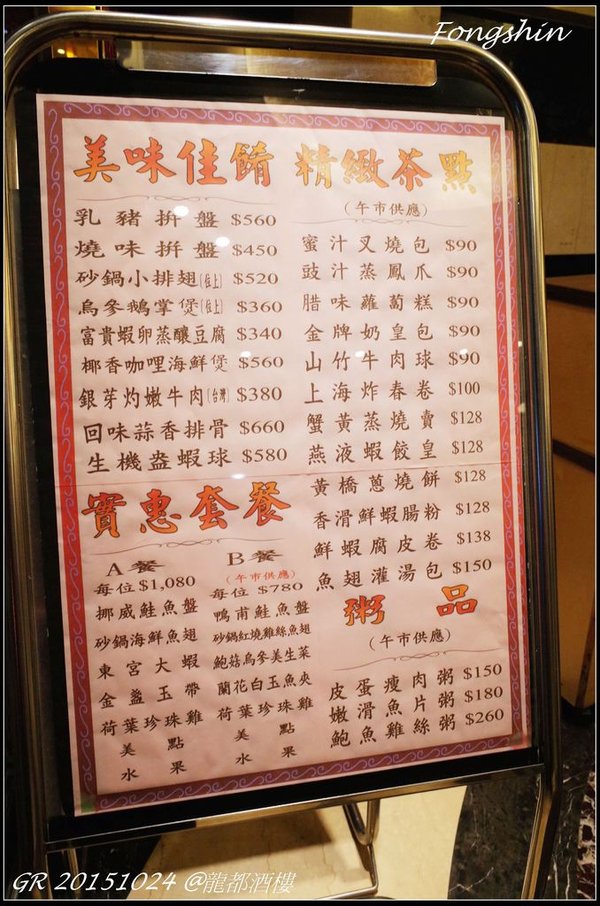 Fongshin
美味佳餚
乳豬拼盤 $560
燒味拼盤 $450
砂鍋小排翅(位上) $520
烏參鵝掌煲(位上) $360
富貴蝦卵蒸釀豆腐 $340
椰香咖哩海鮮煲 $560
銀芽灼嫩牛肉(台灣) $380
回味蒜香排骨 $660
生機盎蝦球 $580
精緻茶點
(午市供應)
蜜汁叉燒包 $90
豉汁蒸鳳爪 $90
腊味蘿蔔糕 $90
金牌奶皇包 $90
山竹牛肉球 $90
上海炸春卷 $100
蟹黃蒸燒賣 $128
燕液蝦餃皇 $128
黃橋蔥燒餅 $128
香滑鮮蝦腸粉 $128
鮮蝦腐皮卷 $138
魚翅灌湯包 $150
實惠套餐
A餐
每位$1,080
挪威鮭魚盤
砂鍋海鮮魚翅
東宮大蝦
金盞玉帶
荷葉珍珠雞
美點
水果
B餐
(午市供應)
每位 $780
鴨甫鮭魚盤
砂鍋紅燒雞絲魚翅
鮑菇烏參美生菜
蘭花白玉魚夾
荷葉珍珠雞
美點
水果
粥品
(午市供應)
皮蛋瘦肉粥 $150
嫩滑魚片粥 $180
鮑魚雞絲粥 $260
GR 20151024 @龍都酒樓